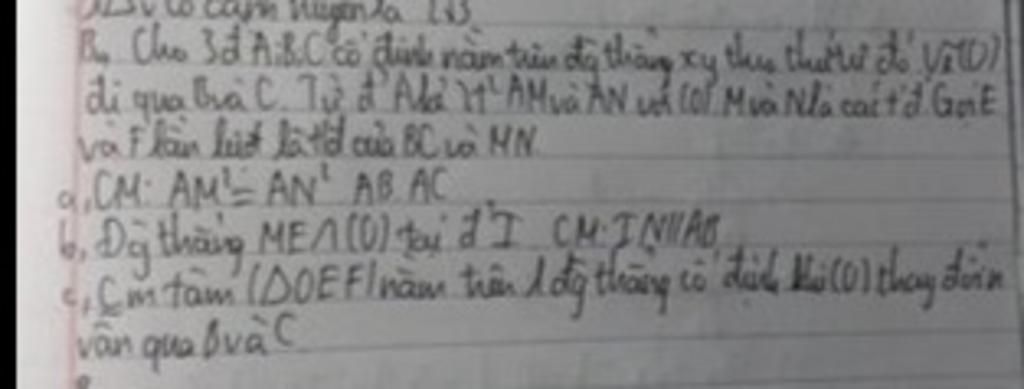 có cạnh huyền là
B, Cho 3đ A,B,C cố định nằm trên đg thẳng xy theo thứ tự đó. Vẽ (O)
đi qua B và C. Từ đ A kẻ tt AM và AN với (O) M và N là các t'đ. Gọi E
và F lần lượt là tđ của BC và MN
a, CM: AM² = AN² AB.AC
b, Đg thẳng ME ∩ (O) tại đ I CM: IN // AB
c, Cm tâm (ΔOEF) nằm trên 1 đg thẳng cố định khi (O) thay đổi n
vẫn qua B và C